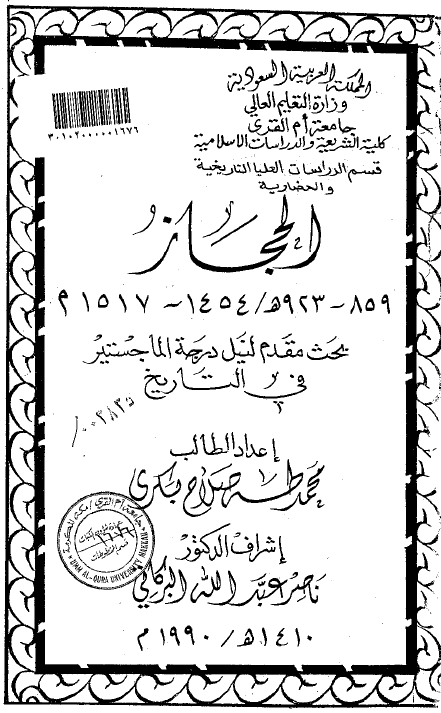 المملكة العربية السعودية
وزارة التعليم العالي
جامعة أم القرى
كلية الشريعة والدراسات الاسلامية
قسم الدراسات العليا التاريخية
والحضارية
٣٠١٠٢٠٠٠٠٠١٦٧٦
الحجاز
٨٥٩ - ٩٢٣هـ/١٤٥٤ - ١٥١٧م
بحث مقدم لنيل درجة الماجستير
في التاريخ
إعداد الطالب
محمد طه صلاح بكري
إشراف الدكتور
ناصر عبد الله البركاتي
١٤١٠هـ/١٩٩٠م
جامعة أم القرى / مكة المكرمة
١٦٧٦
UMM AL-QURA UNIVERSITY MAKKAH